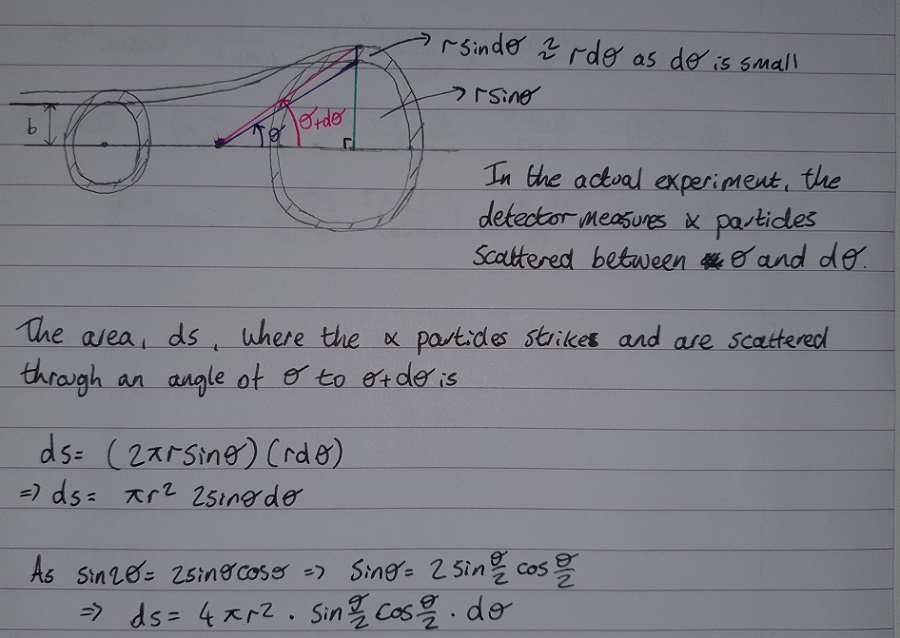 rsindθ ≈ rdθ as dθ is small
rsinθ
b
θ
θ+dθ
r
In the actual experiment, the
detector measures α particles
scattered between θ and dθ.
The area, ds, where the α particles strikes and are scattered
through an angle of θ to θ+dθ is
ds= (2πrsinθ)(rdθ)
=> ds= πr² 2sinθdθ
As sin2θ= 2sinθcosθ => sinθ= 2 sin θ/2 cos θ/2
=> ds= 4πr² · sin θ/2 cos θ/2 · dθ